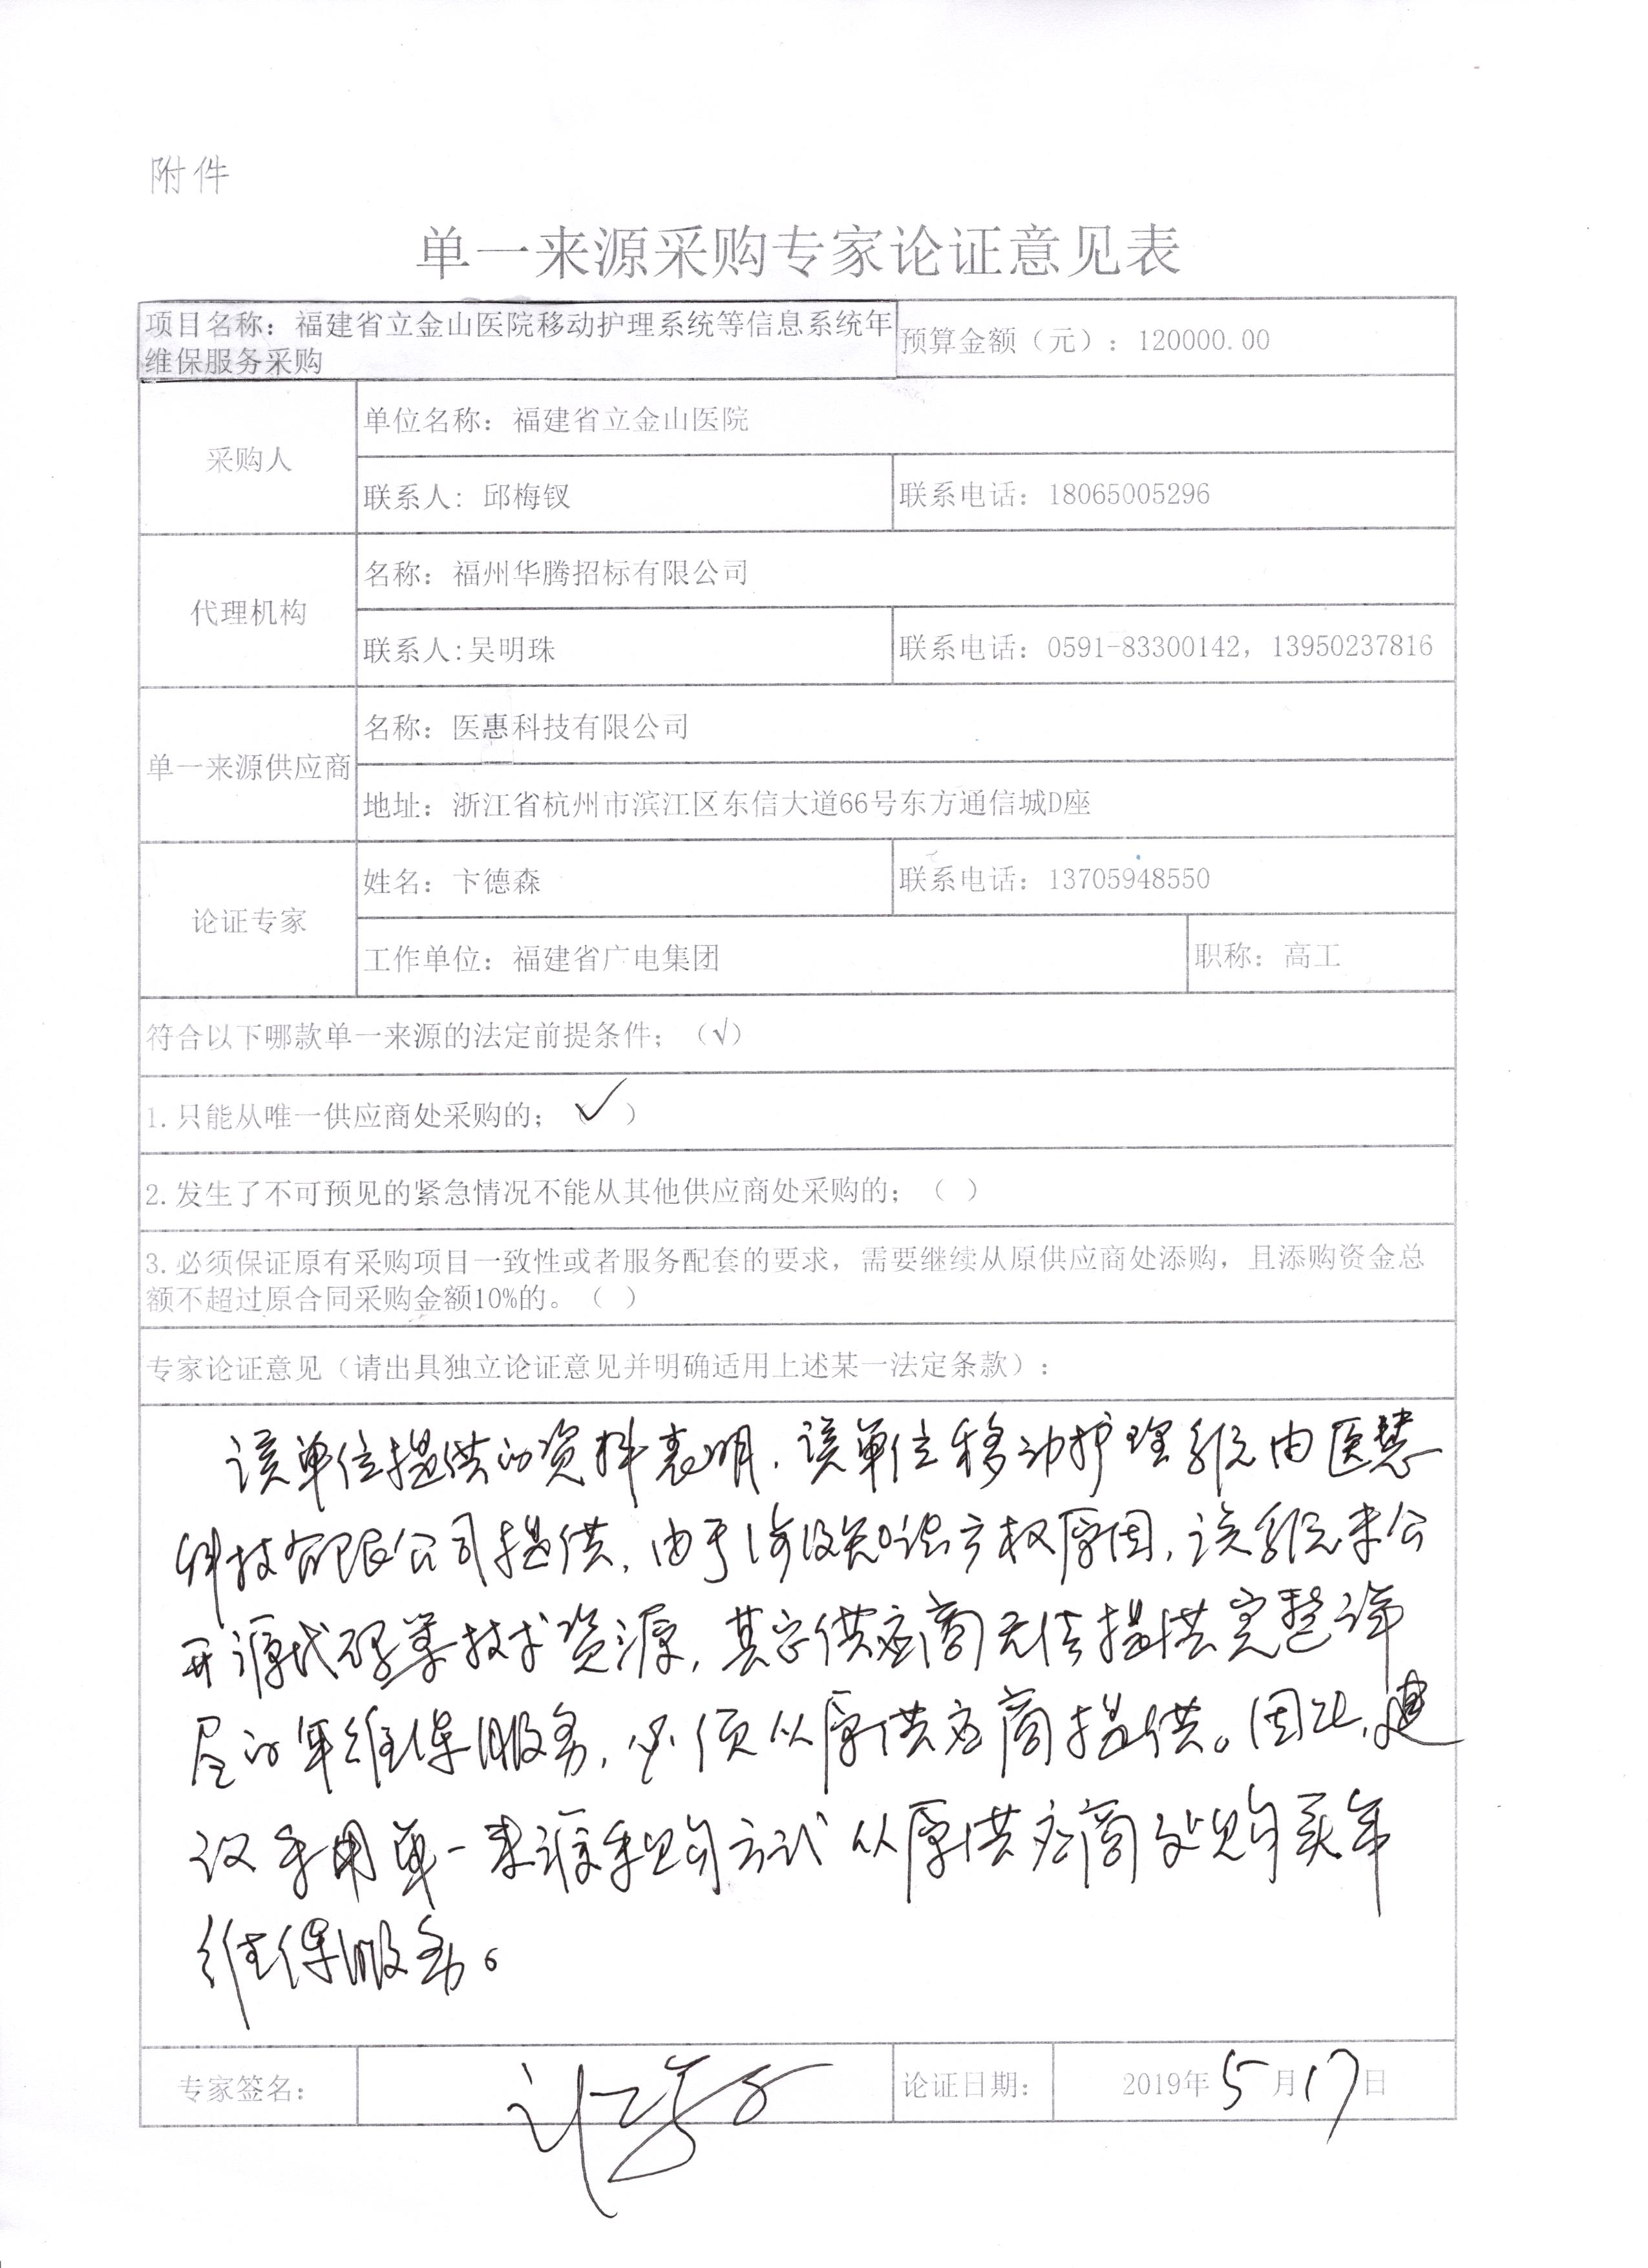 附件
单一来源采购专家论证意见表
项目名称：福建省立金山医院移动护理系统等信息系统年
维保服务采购
预算金额（元）：120000.00
采购人
单位名称：福建省立金山医院
联系人：邱梅钗
联系电话：18065005296
代理机构
名称：福州华腾招标有限公司
联系人:吴明珠
联系电话：0591-83300142，13950237816
单一来源供应商
名称：医惠科技有限公司
地址：浙江省杭州市滨江区东信大道66号东方通信城D座
论证专家
姓名：卞德森
联系电话：13705948550
工作单位：福建省广电集团
职称：高工
符合以下哪款单一来源的法定前提条件；（√）
1.只能从唯一供应商处采购的；（✓）
2.发生了不可预见的紧急情况不能从其他供应商处采购的；（ ）
3.必须保证原有采购项目一致性或者服务配套的要求，需要继续从原供应商处添购，且添购资金总
额不超过原合同采购金额10%的。（ ）
专家论证意见（请出具独立论证意见并明确适用上述某一法定条款）：
该单位提供的资料表明，该单位移动护理系统由医慧
科技有限公司提供，由于涉及知识产权原因，该系统未公
开源代码等技术资源，其它供应商无法提供完整详
尽的年维保服务，必须从原供应商提供。因此，建
议采用单一来源采购方式从原供应商处购买年
维保服务。
专家签名：
论证日期：
2019年5月17日